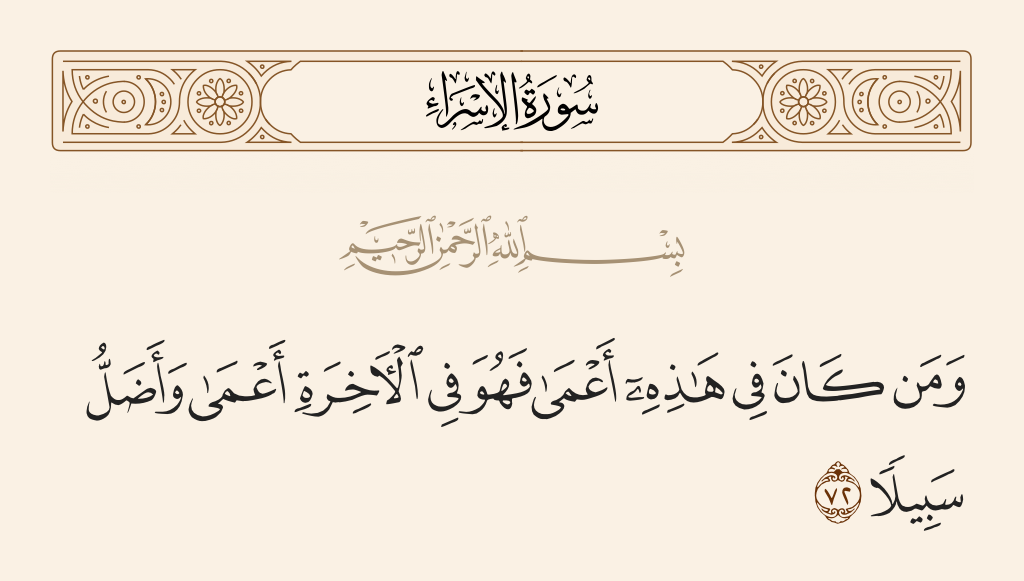 سُورَةُ الإِسْرَاءِ
بِسْمِ ٱللَّهِ ٱلرَّحْمَٰنِ ٱلرَّحِيمِ
وَمَن كَانَ فِي هَـٰذِهِۦٓ أَعْمَىٰ فَهُوَ فِي ٱلْـَٔاخِرَةِ أَعْمَىٰ وَأَضَلُّ
سَبِيلًا ٧٢